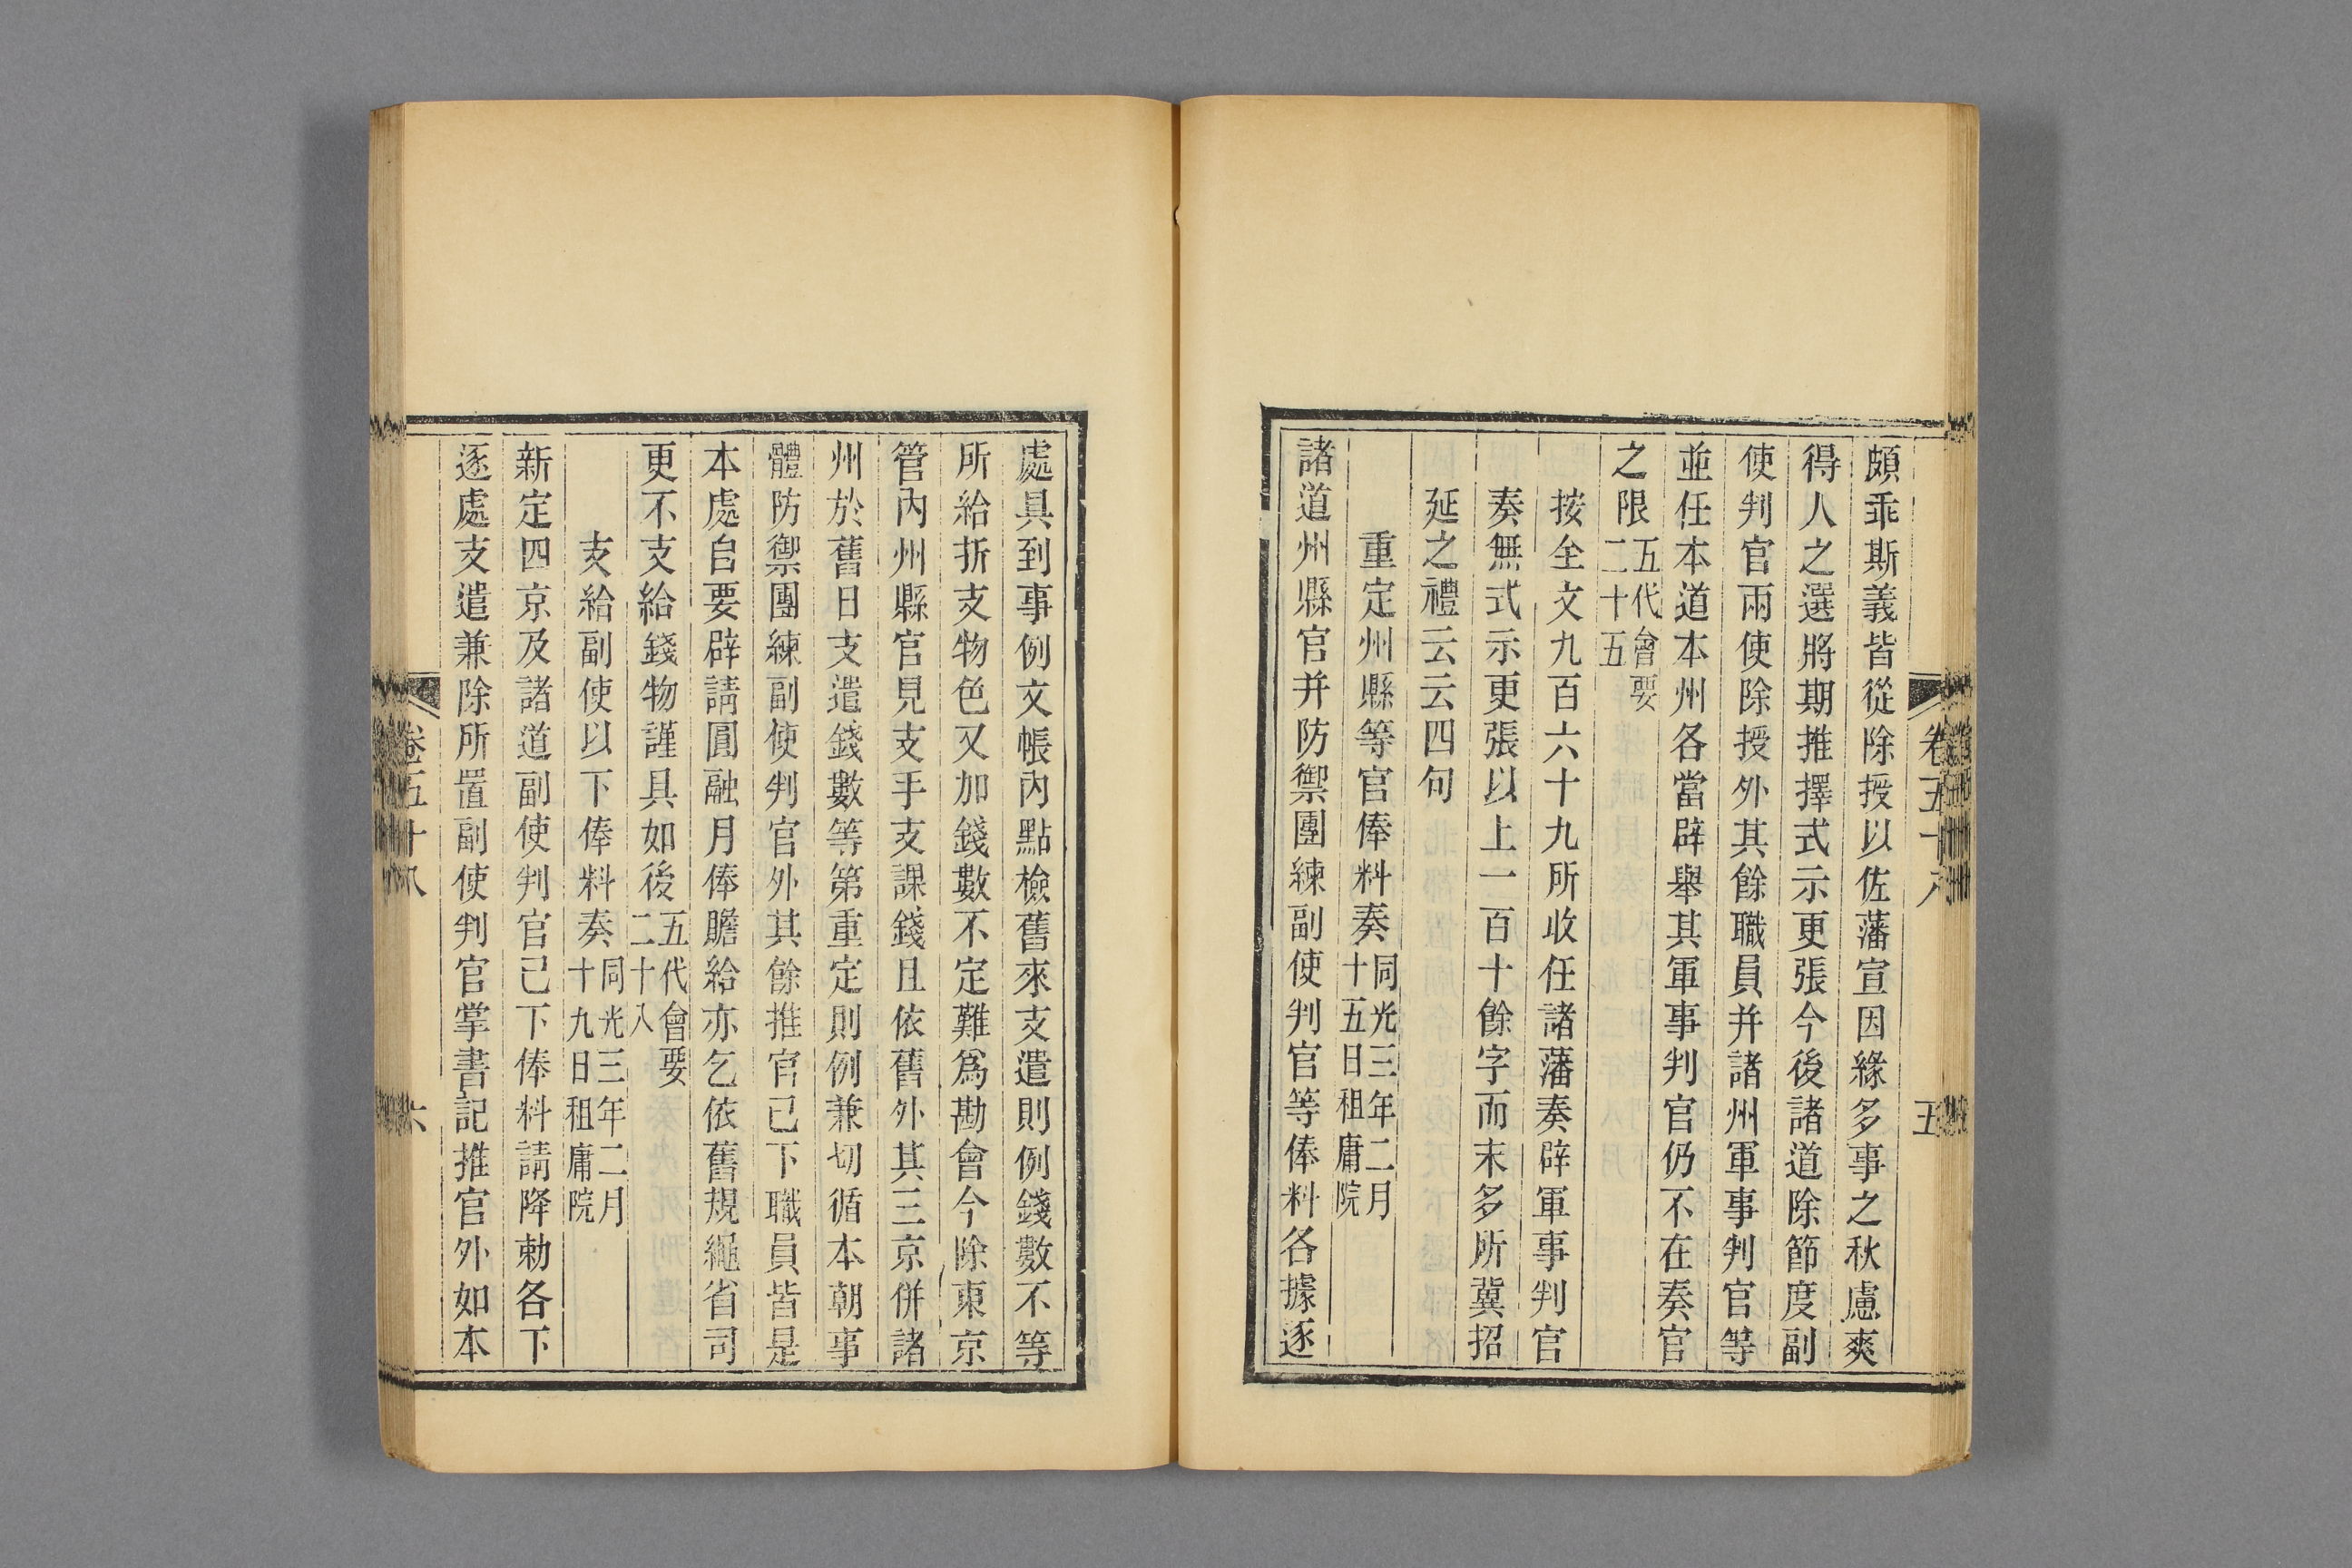 頗乖斯義皆從除授以佐藩宣因緣多事之秋慮爽
得人之選將期推擇式示更張今後諸道除節度副
使判官兩使除授外其餘職員并諸州軍事判官等
並任本道本州各當辟舉其軍事判官仍不在奏官
之限五代會要二十五
按全文九百六十九所收任諸藩奏辟軍事判官
奏無式示更張以上一百十餘字而末多所冀招
延之禮云云四句
重定州縣等官俸料奏同光三年二月十五日租庸院
諸道州縣官并防禦團練副使判官等俸料各據逐
卷五十八
五
處具到事例文帳內點檢舊來支遣則例錢數不等
所給折支物色又加錢數不定難爲勘會今除東京
管內州縣官見支手支課錢且依舊外其三京併諸
州於舊日支遣錢數等第重定則例兼切循本朝事
體防禦團練副使判官外其餘推官已下職員皆是
本處自要辟請圓融月俸贍給亦乞依舊規繩省司
更不支給錢物謹具如後五代會要二十八
支給副使以下俸料奏同光三年二月十九日租庸院
新定四京及諸道副使判官已下俸料請降勅各下
逐處支遣兼除所置副使判官掌書記推官外如本
卷五十八
六